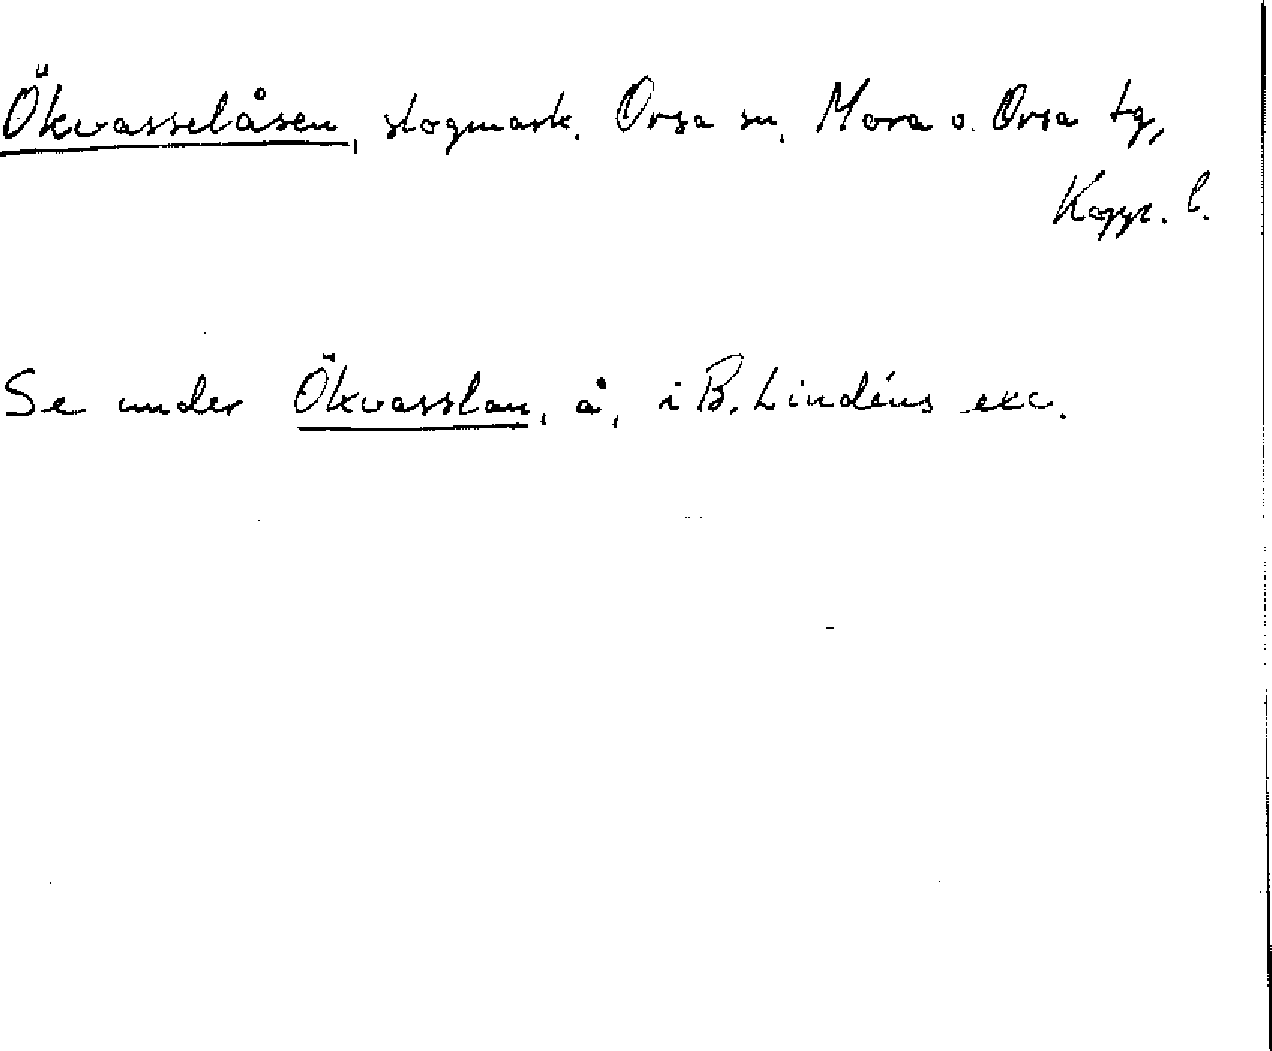 Ökvasselåsen, slogmark. Orsa sn, Mora o. Orsa tg,
Kopp. l.
Se under Ökvasslan, å, i B. Lindéns exc.